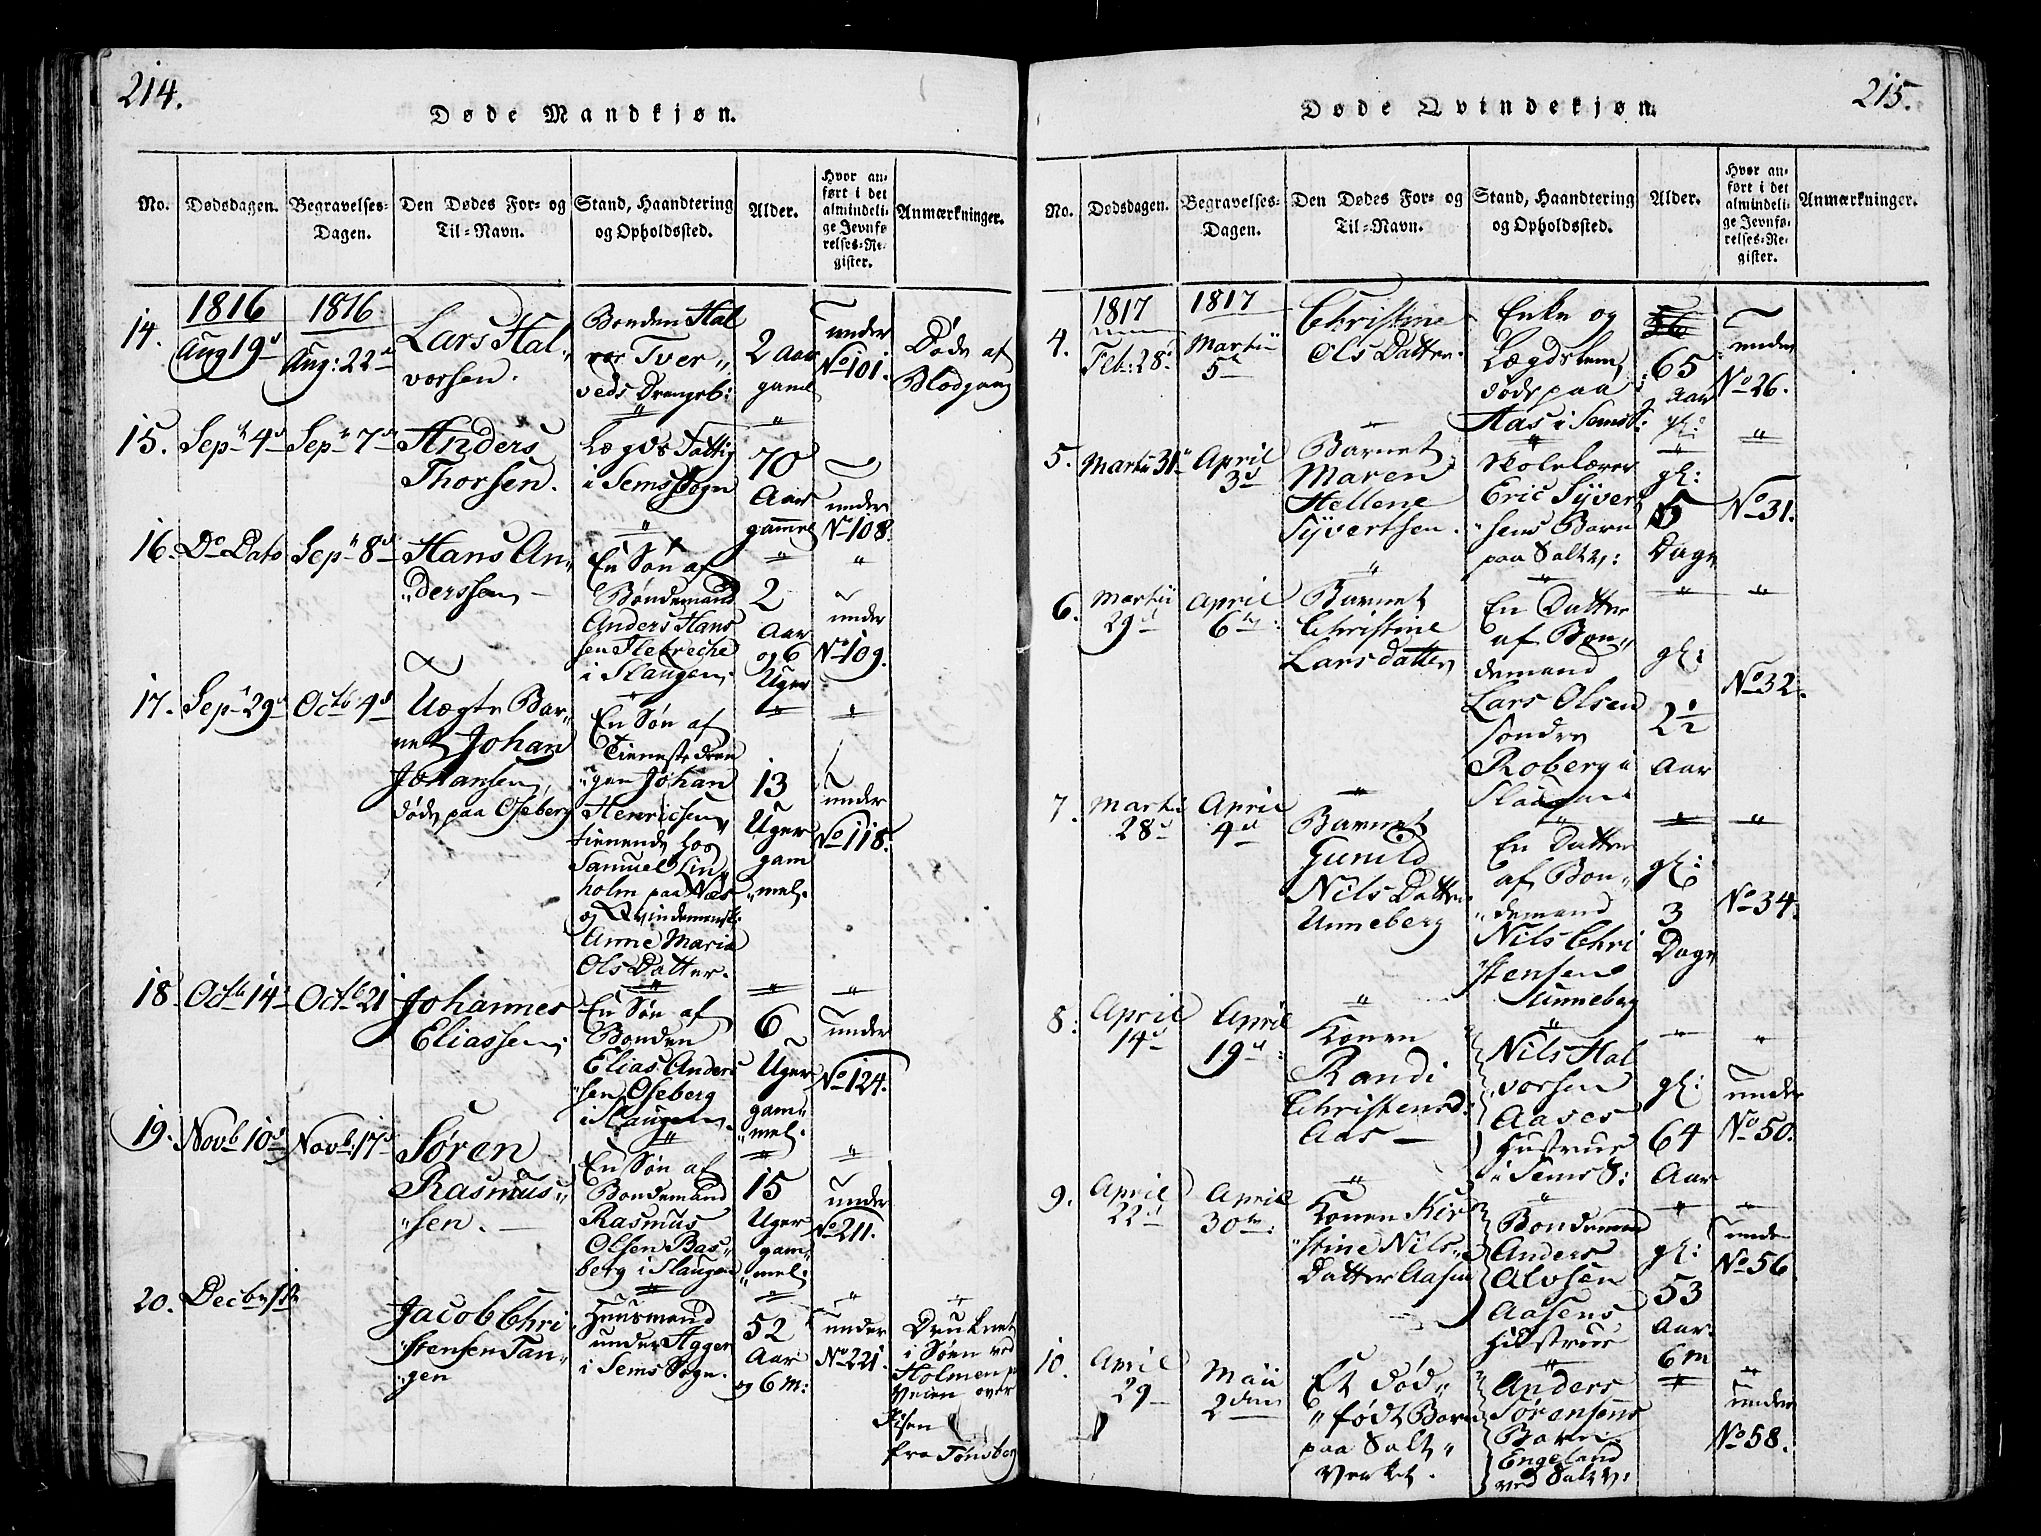 214.
Døde Mandkjøn.
No.
Dødsdagen.
Begravelses-
Dagen.
Den Dødes For- og
Til-Navn.
Stand, Haandtering
og Opholdssted.
Alder.
Hvor an-
ført i det
almindeli-
ge Jevnfø-
relses-Re-
gister.
Anmærkninger.
14.
1816
Aug 19d
1816
Aug: 22d
Lars Hal„
vorsen.
Bonden Hal
vor Tver„
veds Drengeb:
2 Aar
gaml
under
No 101.
Døde af
Blodgang
15.
Sept 4d
Sept 7d
Anders
Thorsen.
Lægds Fattig
i Sems Sogn
70
Aar
gammel
under
No 108.
16.
Do Dato
Sept 8d
Hans An„
„derssen
En Søn af
Bondemand
Anders Hans
sen
i Slaugen.
2
Aar
og 6
Uger
under
No 109.
17.
Sept 29d
Octb 4d
Uægte Bar„
net Johan
Johansen,
døde paa Oseberg
En Søn af
Tienestedren
„gen Johan
Henricsen,
tienende hos
Samuel Lin„
holm paa Næs
og Qvindemensk:
Anne Maria
Ols Datter.
13
Uger
gam
„mel.
under
No 118.
18.
Octb 14d
Octb 21
Johannes
Eliassen,
En Søn af
Bonden
Elias Anders
„sen Oseberg
i Slaugen.
6
Uger
gam„
„mel.
under
No 124.
19.
Novb 10d
Novb: 17d
Søren
Rasmus„
„sen.
En Søn af
Bondemand
Rasmus
Olsen Bas„
berg i Slaugen
15
Uger
gam„
„mel.
under
No 211.
20.
Jacob Chri
„stensen Tan„
„gen
Huusmand
under Agger
i Sems Sogn.
52
Aar
og 6 m:
under
No 221.
Druknet
i Søen ved
Holmen paa
Veien over
Iisen
fra Tønsberg
215.
Døde Qvindekjøn.
No.
Dødsdagen.
Begravelses-
Dagen.
Den Dødes For- og
Til-Navn.
Stand, Haandtering
og Opholdssted.
Alder.
Hvor an-
ført i det
almindeli-
ge Jevnfø-
relses-Re-
gister.
Anmærkninger.
4.
1817
Feb: 28d
1817
Martii
5d
Christine
Ols Datter.
Enke og
Lægdslem,
døde paa
Aas i Sems S:
65
Aar
gl:
under
No 26.
5.
Martii 31d
April
3d
Barnet
Maren
Hellene
Syvertsen.
Skolelærer
Eric Syver
„sens Barn
paa Saltv:
gl:
5
Dage
No 31.
6.
Martii
29d
April
6te:
Barnet
Christine
Larsdatter
En Datter
af Bon„
demand
Lars Olsen
søndre
Roberg i
Slaugen.
gl:
2 1/2
Aar
No 32.
7.
Martii
28d
April
4d
Barnet
Gunild
Nils Datter
Unneberg
En Datter
af Bon„
„demand
Nils Chri
„stensens
Unneberg
gl:
3
Dage
No 34.
8.
April
14d
April
19d:
Konen
Randi
Christensd:
Aas
Nils Hal
vorsen
Aases
Hustrue
i Sems S:
gl:
64
Aar
under
No 50.
9.
April
22d
April
30te:
Konen Kir
„stine Nils„
Datter Aasen
Bondemand
Anders
Alvsen
Aasens
Hustrue
gl:
53
Aar.
6 m
under
No 56
10.
April
29
Maii
2den
Et død„
„født Barn
paa Salt„
Verket.
Anders
Sørensens
Barn.
Engeland
ved Saltv:
under
No 58.